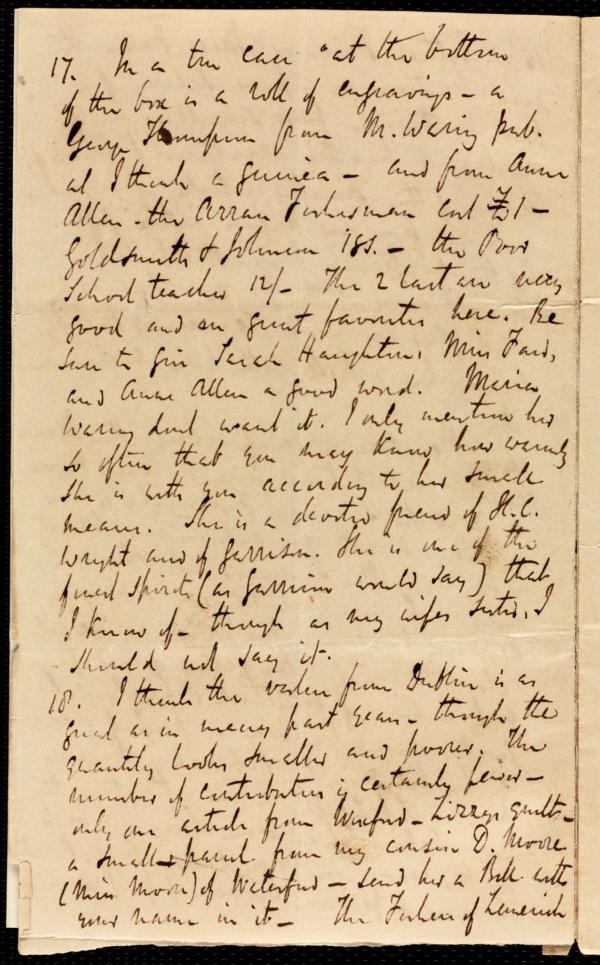 17. In a tin case at the bottom
of the box is a roll of engravings - a
George Thompson from M. Waring pub.
at I think a guinea - and from Anne
Allen - the Arran Fisherman cost £1 -
Goldsmith & Johnson 18s. - the Poor
School teacher 12/- The 2 last are very
good and are great favorites here. Be
sure to give Sarah Haughton, Miss
and Anne Allen a good word. Maria
Waring dont want it. I only mention her
so often that you may know how warmly
she is with you according to her small
means. She is a devoted friend of H. C.
Wright and of Garrison. She is one of the
finest spirits (as Garrison would say) that
I know of - though as my wifes sister, I
should not say it.
18. I think the value from Dublin is as
great as in many past years - though the
quantity looks smaller and poorer. The
number of contributors is certainly fewer -
only one article from Wexford - Lizzys quilt -
a small parcel from my cousin D. Moore
(Miss Moore) of Waterford - send her a Bell with
your name in it - The of Limerick